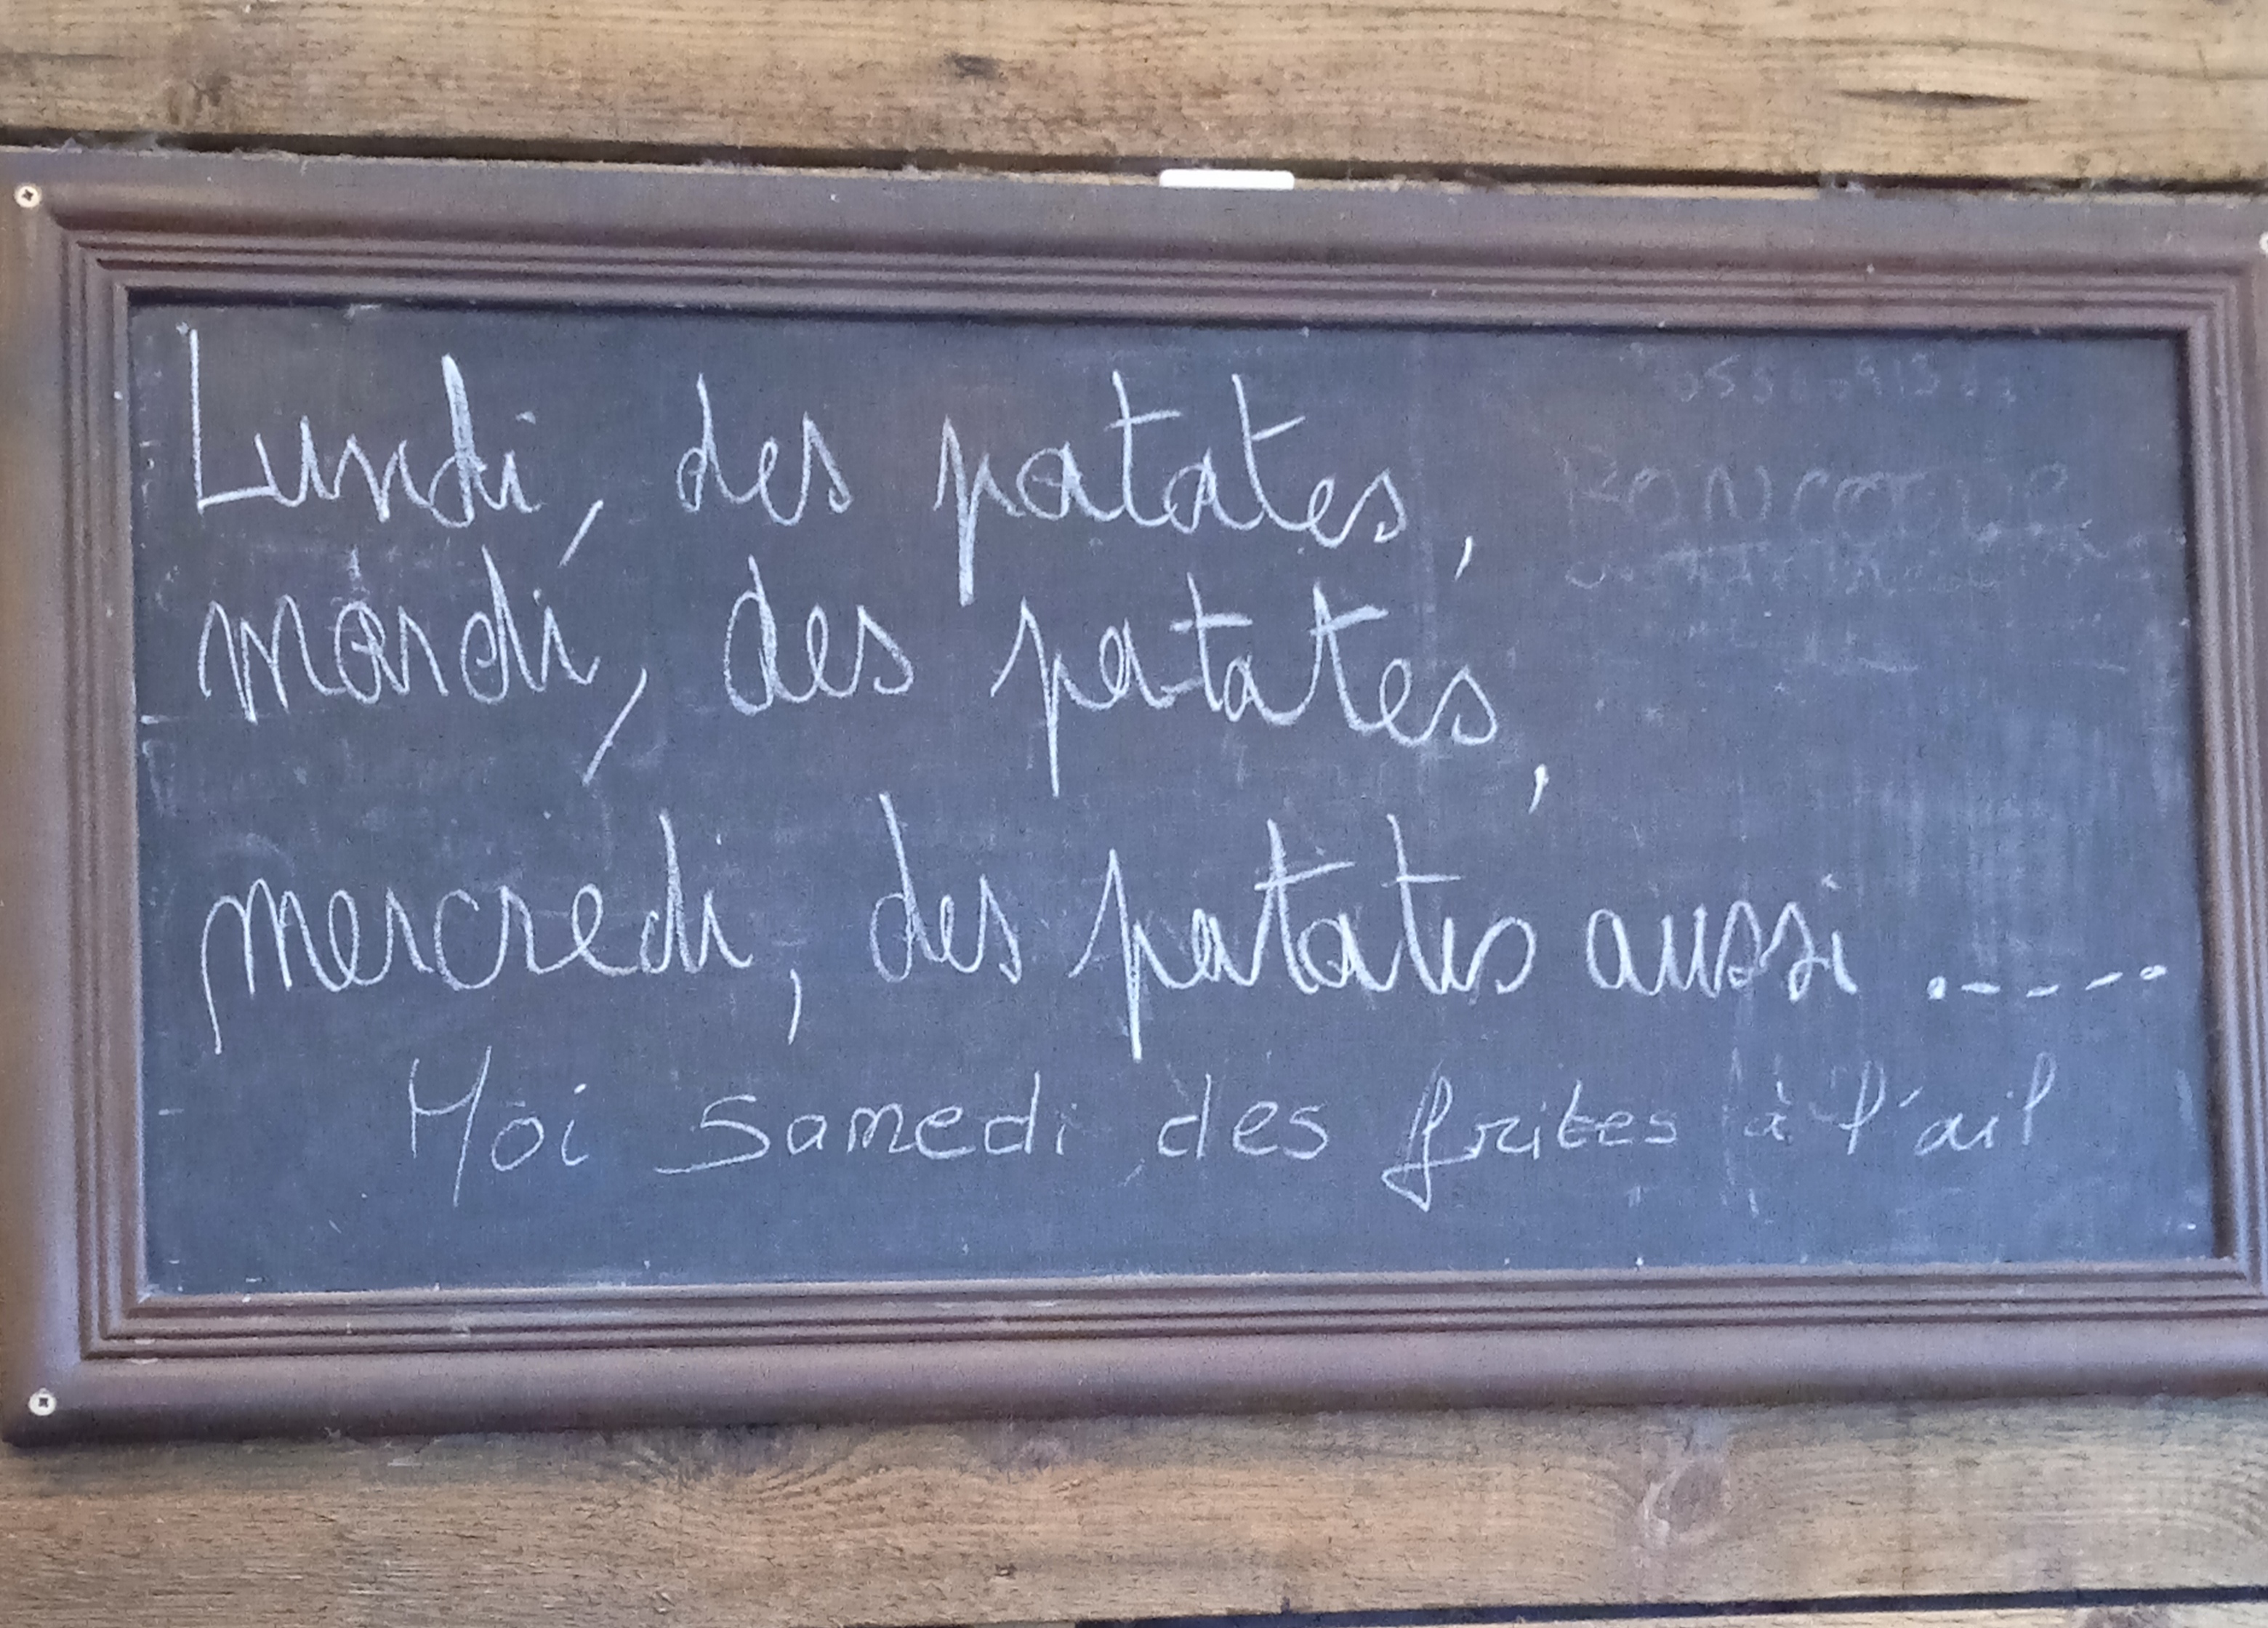 Lundi, des patates,
mardi, des patates,
mercredi, des patates aussi .....
Moi samedi des frites à l'ail